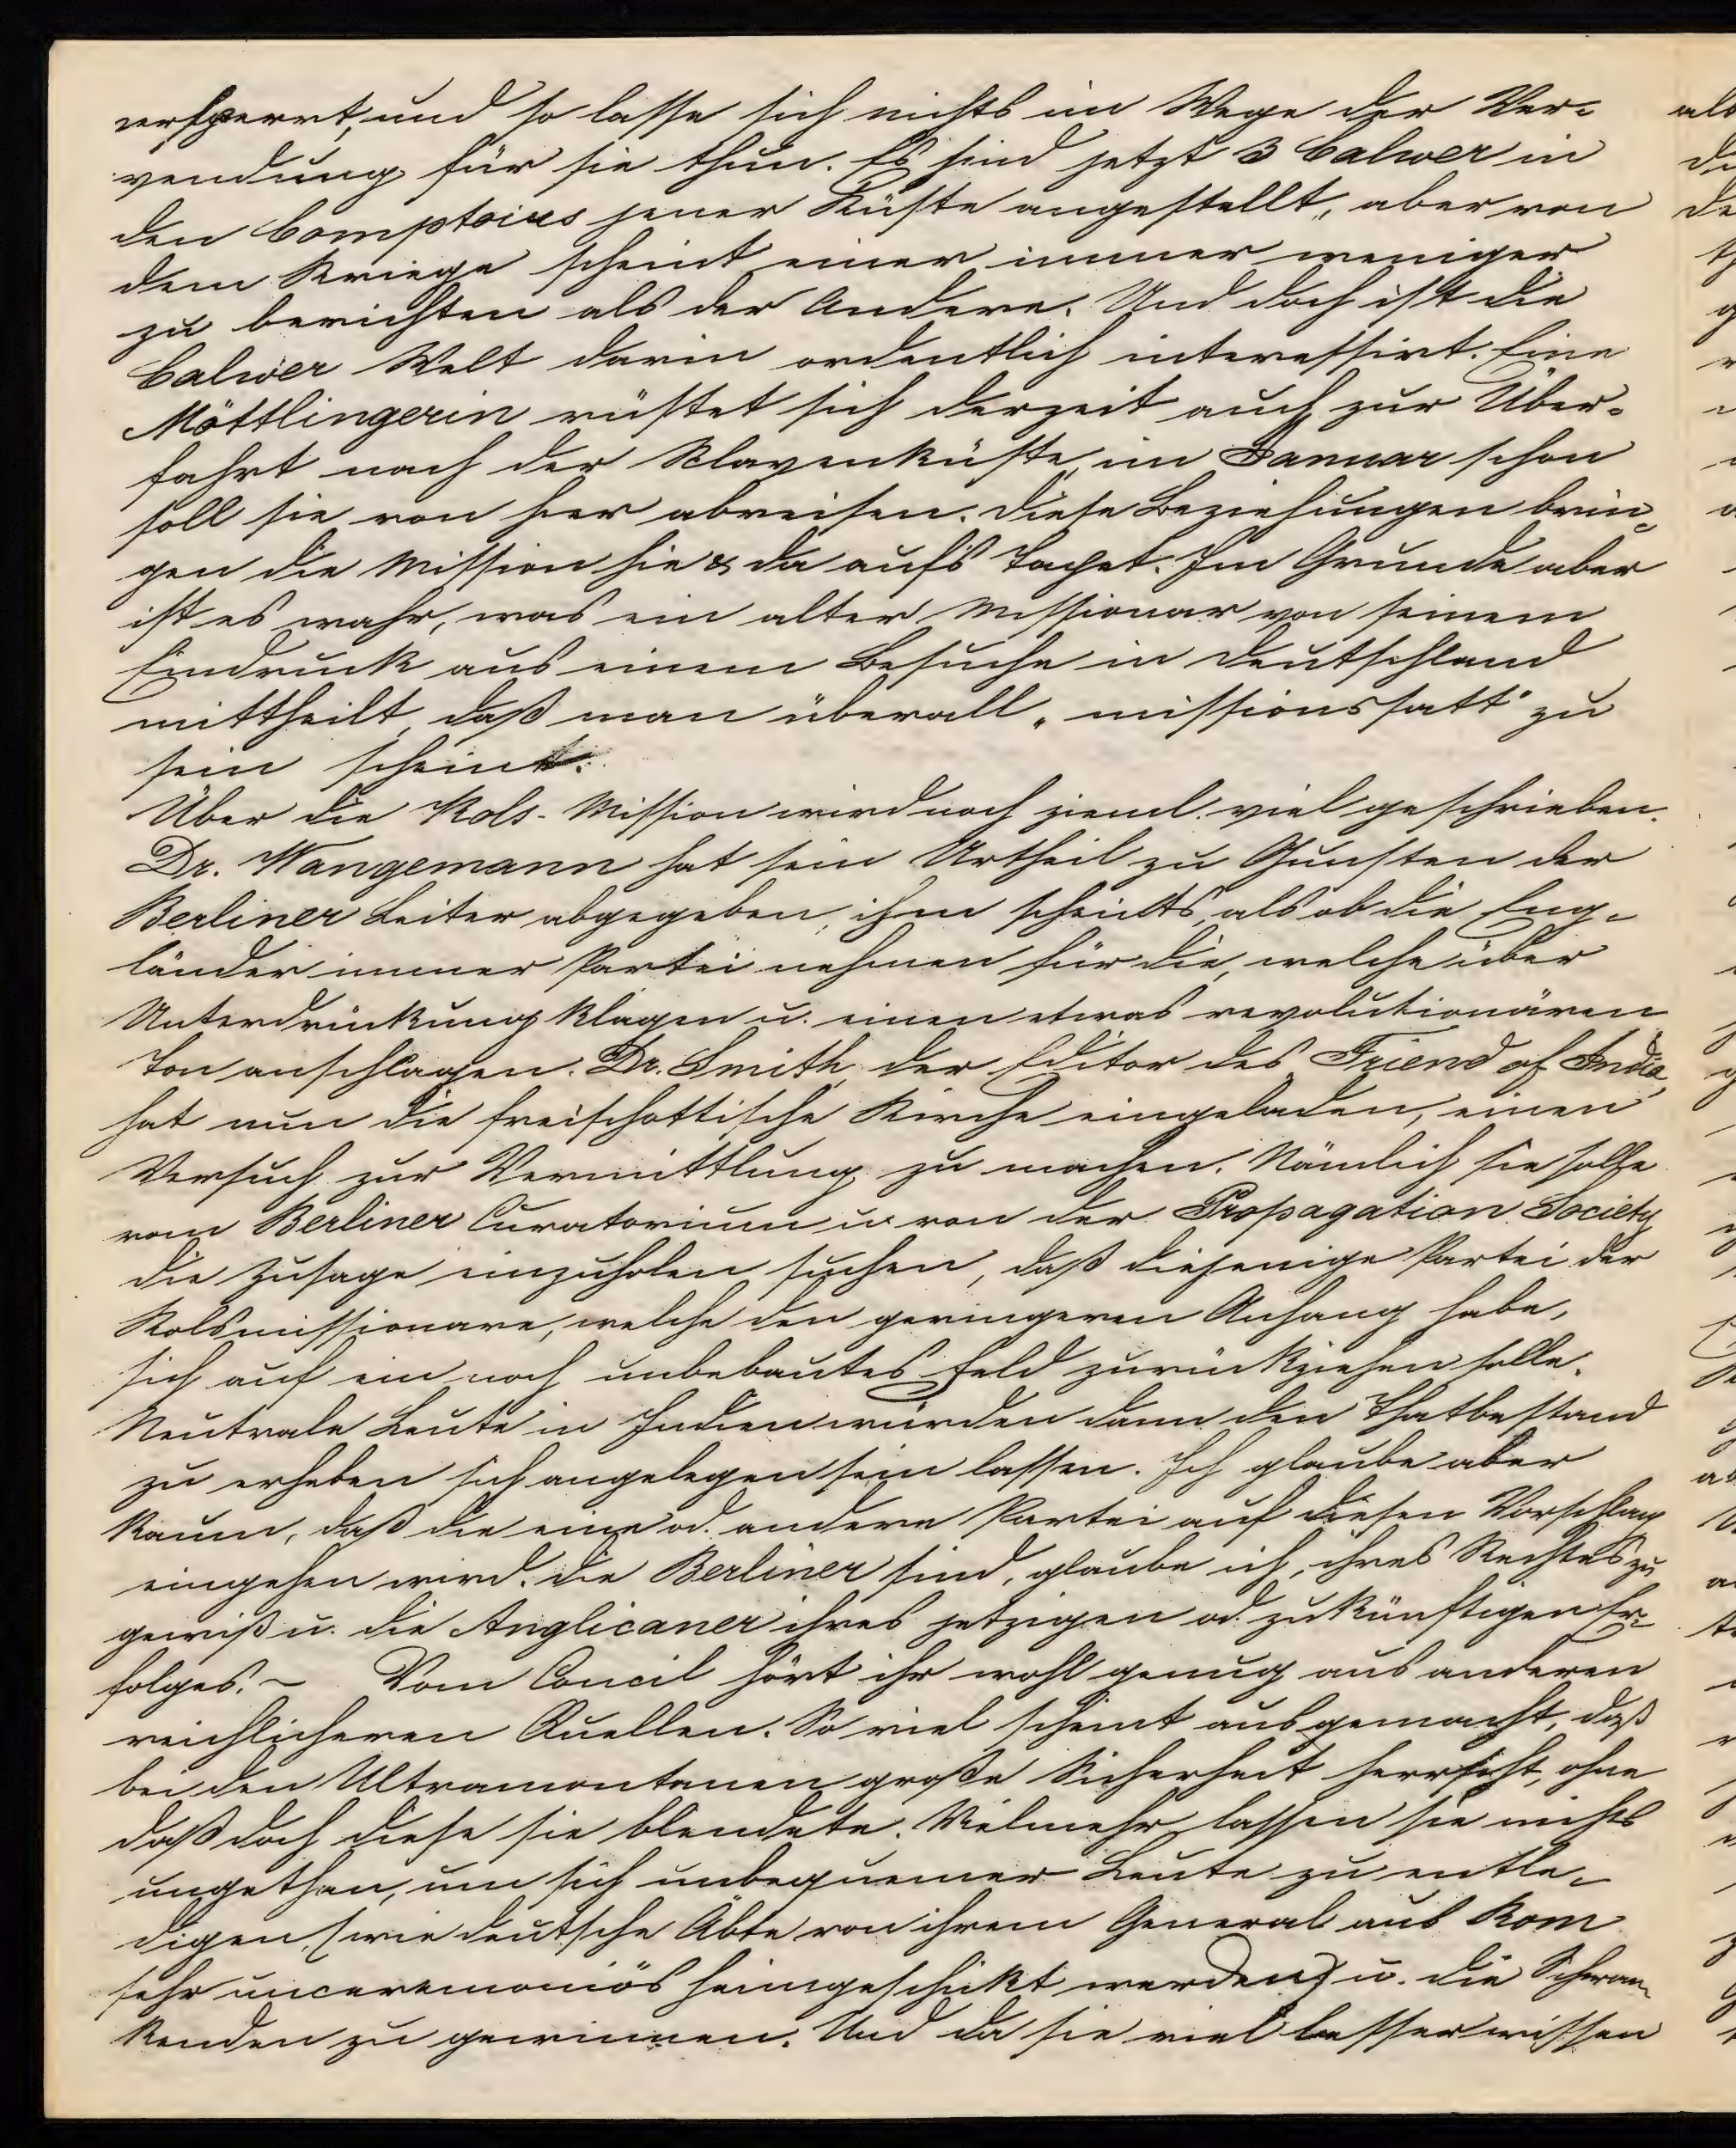 versperrt, und so lasse sich nichts im Wege der Ver-
wendung für sie thun. Es sind jetzt 3 Calwer in
den Comptoirs jener Küste angestellt, aber von
dem Kriege scheint einer immer weniger
zu berichten als der Andere. Und doch ist die
Calwer Welt darin ordentlich interessirt. Eine
Möttlingerin rüstet sich derzeit auch zur Über-
fahrt nach der Sklavenküste, im Januar schon
soll sie von hier abreisen. Diese Beziehungen brin-
gen die Mission hie & da aufs Tapet. Im Grunde aber
ist es wahr, was ein alter Missionar von seinem
Eindruck aus einem Besuche in Deutschland
mittheilt, daß man überall „missionssatt" zu
sein scheint.
Über die Kols-Mission wird noch zieml. viel geschrieben.
Dr. Wangemann hat sein Urtheil zu Gunsten der
Berliner Leiter abgegeben, ihm scheints, als ob die Eng-
länder immer Partei nehmen für die, welche über
Unterdrückung klagen u. einen etwas revolutionären
Ton anschlagen. Dr. Smith, der Editor des Friend of India,
hat nun die freischottische Kirche eingeladen, einen
Versuch zur Vermittlung zu machen. Nämlich sie solle
vom Berliner Curatorium u. von der Propagation Society
die Zusage einzuholen suchen, daß diejenige Partei der
Kolsmissionare, welche den geringeren Anhang habe,
sich auf ein noch unbebautes Feld zurückziehen solle.
Neutrale Leute in Indien würden dann den Thatbestand
zu erheben sich angelegen sein lassen. Ich glaube aber
kaum, daß die eine od. andere Partei auf diesen Vorschlag
eingehen wird. Die Berliner sind, glaube ich, ihres Rechtes zu
gewiß u. die Anglicaner ihres jetzigen od. zukünftigen Er-
folges. ~ Vom Concil hört ihr wohl genug aus anderen
reichlicheren Quellen. So viel scheint ausgemacht, daß
bei den Ultramontanen große Sicherheit herrscht, ohne
daß doch diese sie blendete. Vielmehr lassen sie nichts
ungethan, um sich unbequemer Leute zu entle-
digen, (wie deutsche Äbte von ihrem General aus Rom
sehr unceremoniös heimgeschickt werden) u. die Schwan-
kenden zu gewinnen. Und da sie viel besser wissen